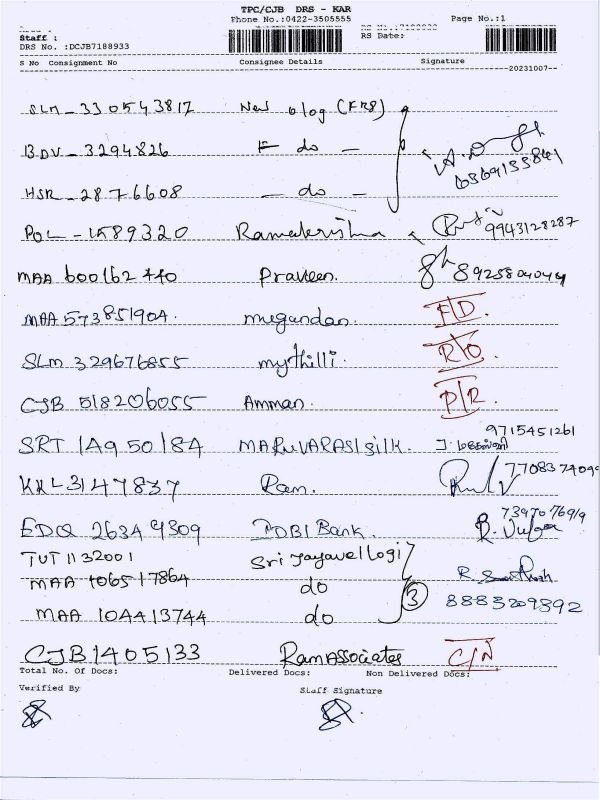 TPC/CJB DRS - KAR
Phone No.:0422-3505555 Page No.:1
Staff :
DRS No. :DCJB7188933 RS Date:
S No Consignment No Consignee Details Signature
--20231007--
SLM-330543817 New olog (FRS)
BDV-3294826 - do -
HSR-2876608 - do -
POL-1589320 Ramakrishna 9943128287
MAA 600162440 Praveen. 8925804044
MAA 573851904. mugundan. F/D.
SLM 329676855 mythilli. R/O.
CJB 518206055 Amman. P/R.
SRT 14950184 MARUVARASI silk. 9715451261
KKL3147837 Ram.
EDQ 26344309 IDBI Bank.
TUT 1132001 Sri Jayavel Logi
MAA 106517864 do
MAA 104413744 do 3 8883209892
CJB1405133 Ram Associates C/N
Total No. Of Docs: Delivered Docs: Non Delivered Docs:
Verified By Staff Signature